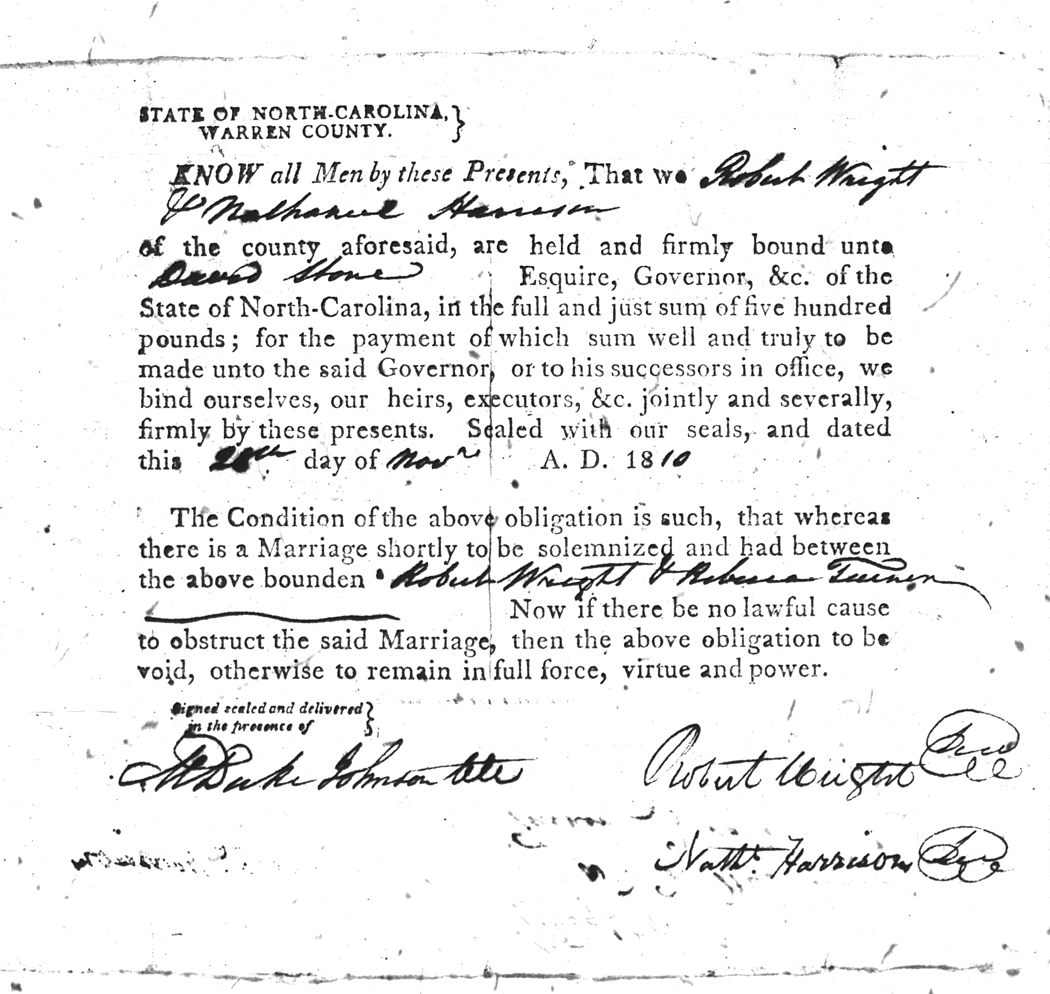 STATE OF NORTH-CAROLINA, }
WARREN COUNTY.
KNOW all Men by these Presents, That we Robert Wright
& Nathaniel Harrison
of the county aforesaid, are held and firmly bound unto
David Stone Esquire, Governor, &c. of the
State of North-Carolina, in the full and just sum of five hundred
pounds; for the payment of which sum well and truly to be
made unto the said Governor, or to his successors in office, we
bind ourselves, our heirs, executors, &c. jointly and severally,
firmly by these presents. Sealed with our seals, and dated
this 28th day of Novr A. D. 1810
The Condition of the above obligation is such, that whereas
there is a Marriage shortly to be solemnized and had between
the above bounden Robert Wright & Rebecca Turner
Now if there be no lawful cause
to obstruct the said Marriage, then the above obligation to be
void, otherwise to remain in full force, virtue and power.
Signed sealed and delivered }
in the presence of
M Duke Johnson Robert Wright Seal
Nathl. Harrison Seal